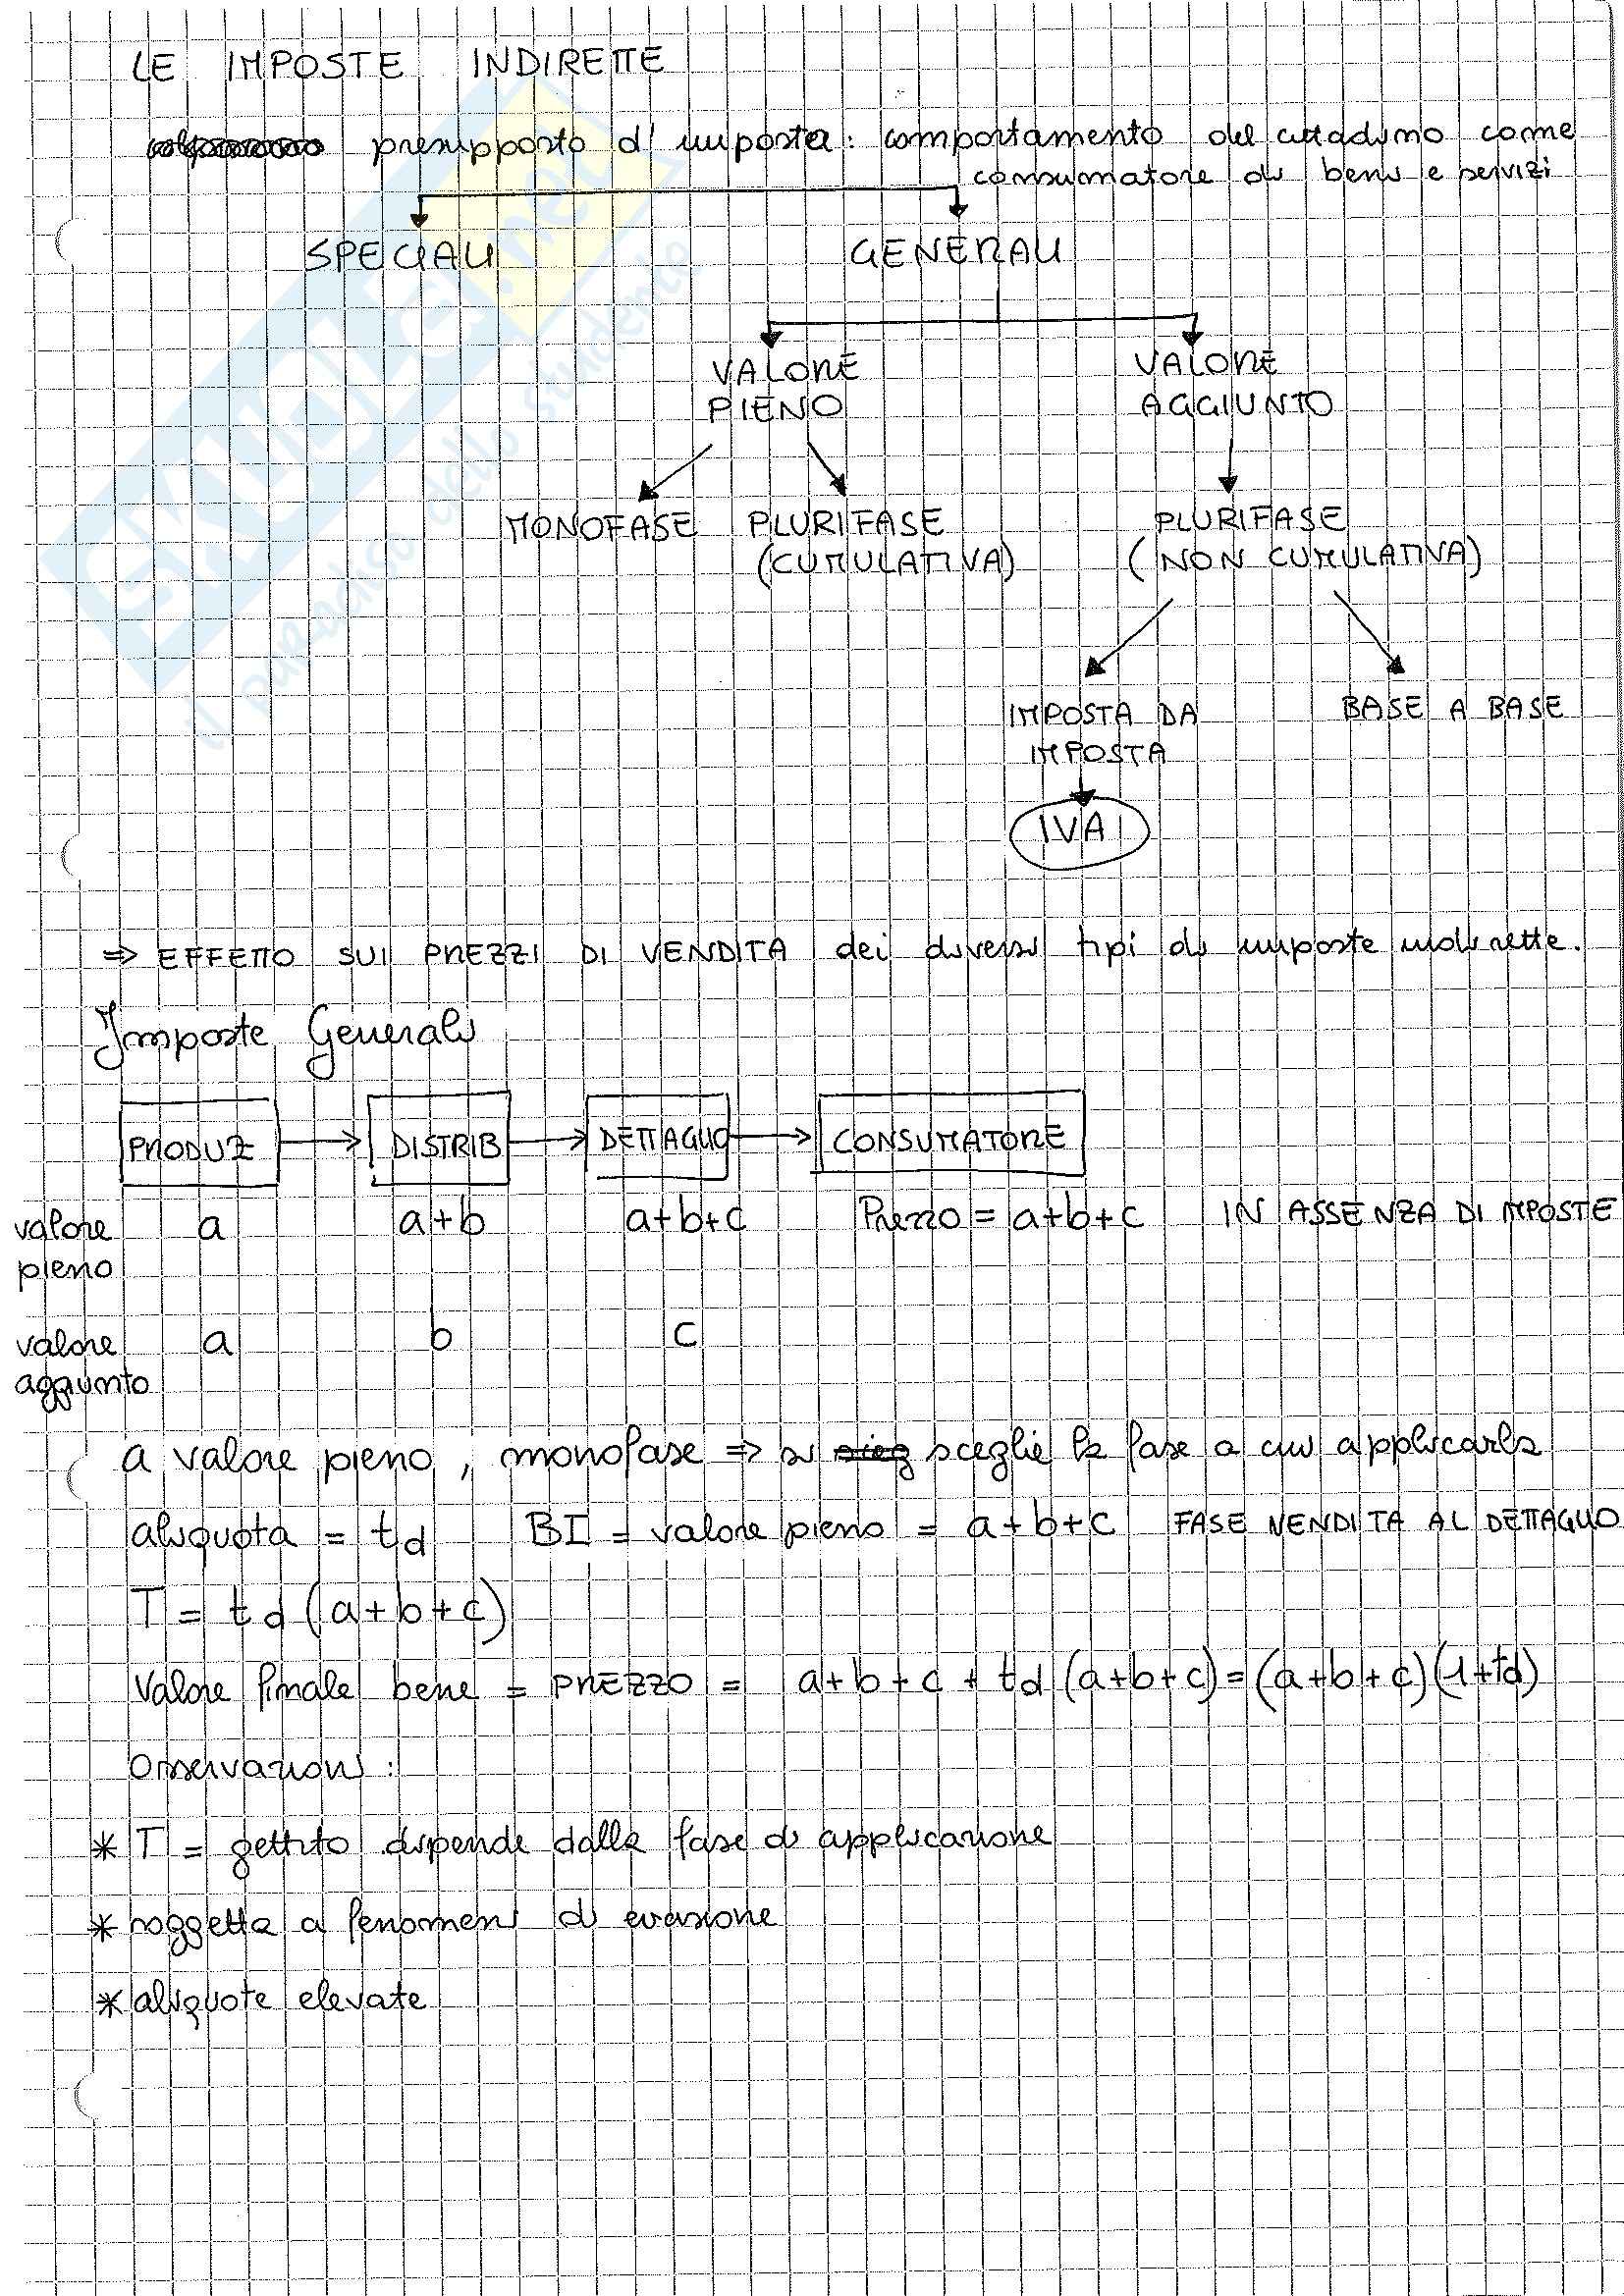 LE IMPOSTE INDIRETTE
presupposto d'imposta: comportamento del cittadino come
consumatore di beni e servizi
SPECIALI GENERALI
VALORE PIENO VALORE AGGIUNTO
MONOFASE PLURIFASE (CUMULATIVA) PLURIFASE (NON CUMULATIVA)
IMPOSTA DA IMPOSTA BASE A BASE
IVA
⇒ EFFETTO SUI PREZZI DI VENDITA dei diversi tipi di imposte indirette.
Imposte Generali
PRODUZ → DISTRIB → DETTAGLIO → CONSUMATORE
valore pieno a a+b a+b+c Prezzo = a+b+c IN ASSENZA DI IMPOSTE
valore aggiunto a b c
a valore pieno, monofase ⇒ si sceglie la fase a cui applicarla
aliquota = td BI = valore pieno = a+b+c FASE VENDITA AL DETTAGLIO
T = td (a+b+c)
Valore finale bene = PREZZO = a+b+c + td (a+b+c) = (a+b+c)(1+td)
Osservazioni:
* T = gettito dipende dalla fase di applicazione
* soggetta a fenomeni di evasione
* aliquote elevate
STUDENTI.net
il paradiso dello studente